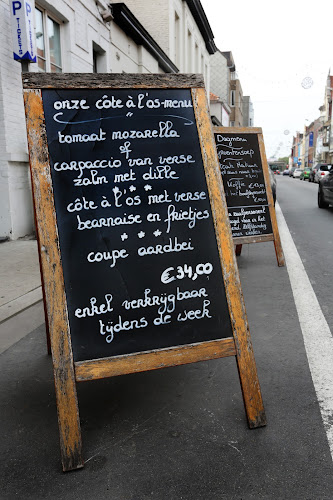 P
TICKETS
onze côte à l'os-menu
tomaat mozarella
of
carpaccio van verse
zalm met dille
côte à l'os met verse
bearnaise en frietjes
coupe aardbei
€34,00
enkel verkrijgbaar
tijdens de week
Dagmenu